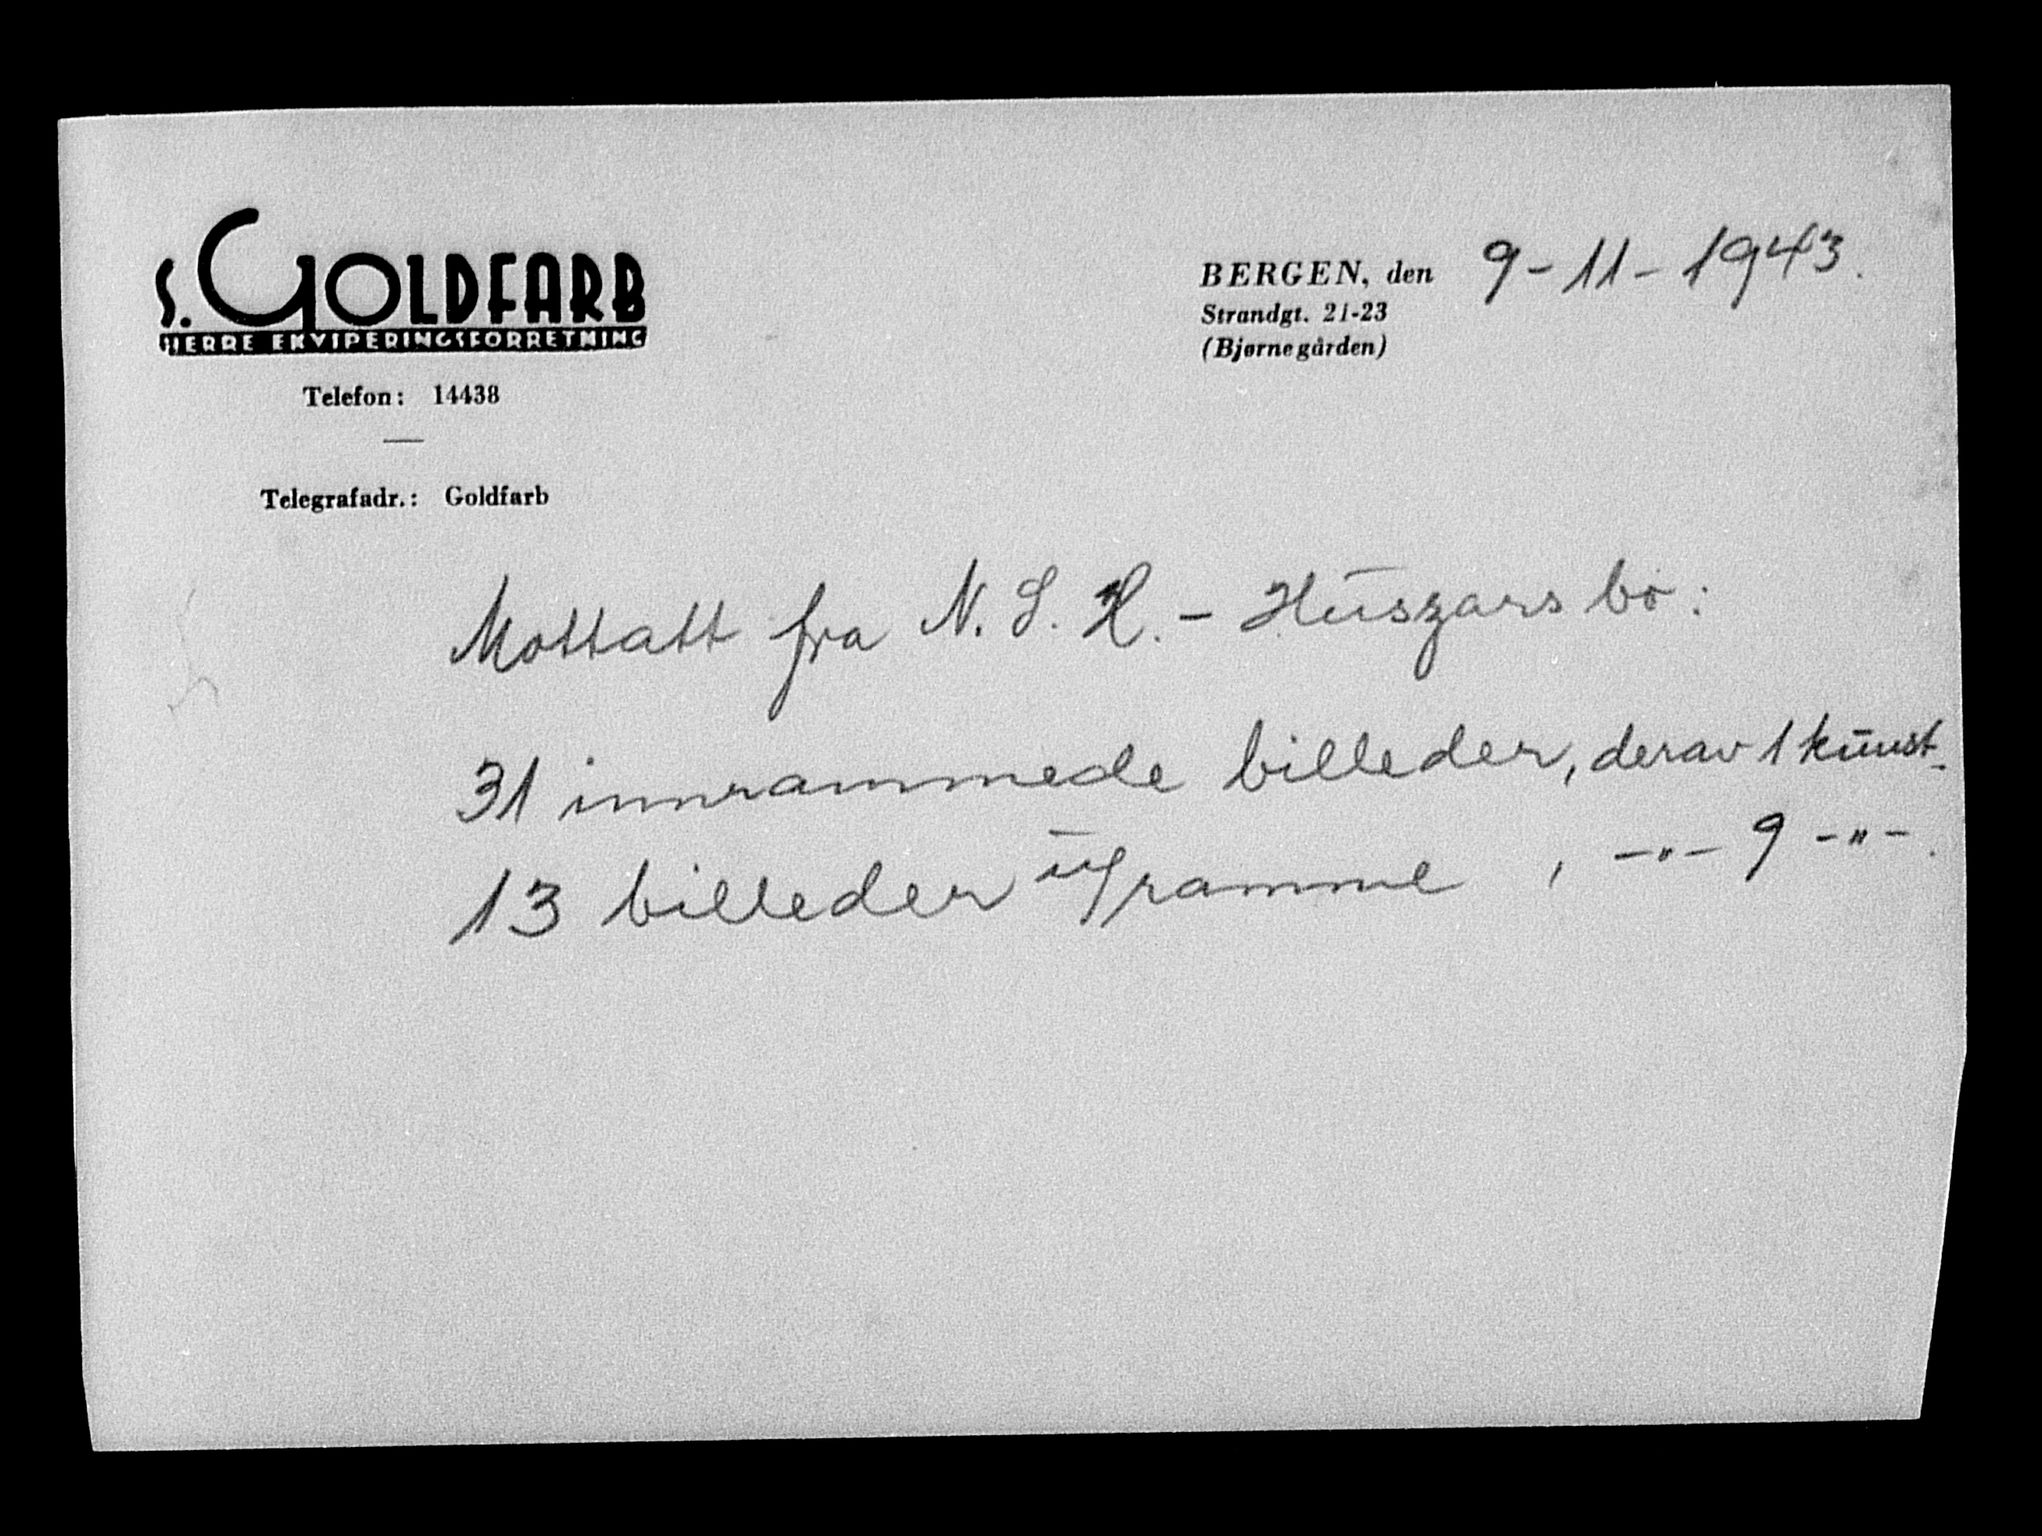 S. GOLDFARB
HERRE EKVIPERINGSFORRETNING
Telefon: 14438
Telegrafadr.: Goldfarb
BERGEN, den 9-11-1943.
Strandgt. 21-23
(Bjørnegården)
Mottatt fra N. S. H. - Huszars bo:
31 innrammede billeder, derav 1 kunst.
13 billeder u/ramme , -"- 9 -"-.